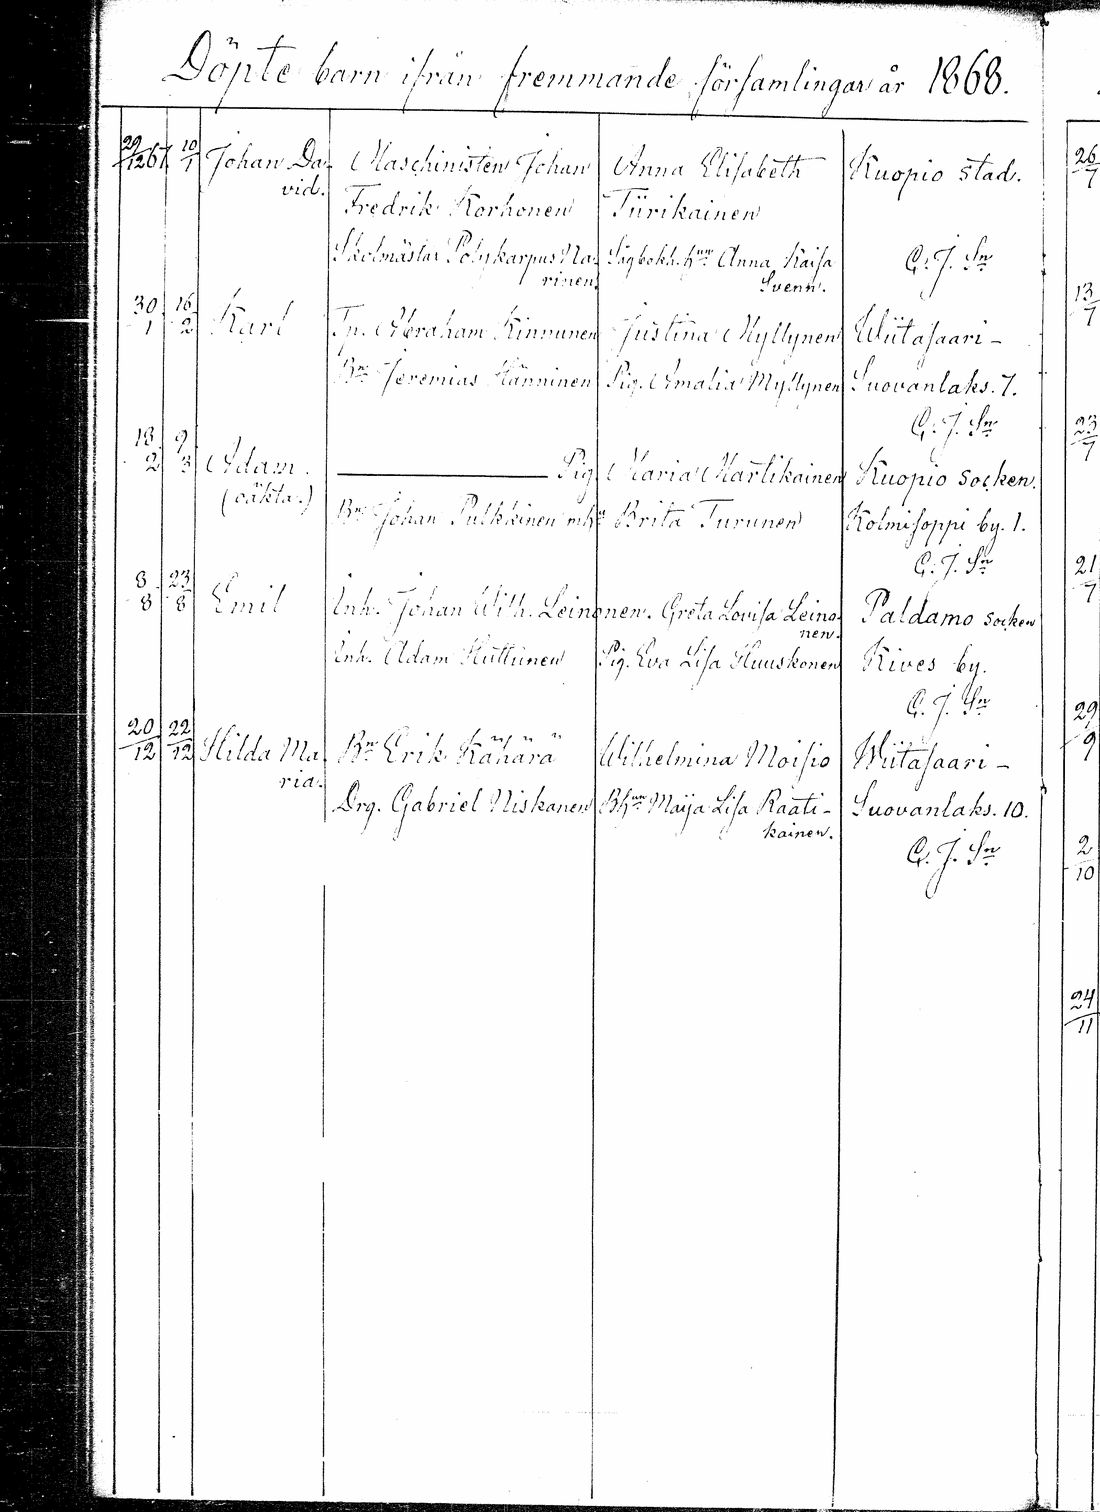 Döpte barn ifrån fremmande församlingar år 1868.
29/12 67. 10/1 Johan Da- Maschinisten Johan Anna Elisabeth Kuopio stad.
vid. Fredrik Korhonen Tiirikainen
Skolmästar Polykarpus Na- Sigbokh. hun Anna Kaisa G. J. Sn
rinen. Svenn.
30/1 16/2 Karl Tp. Abraham Kinnunen Justina Myllynen Wiitasaari -
Bn Jeremias Hänninen Pig. Amalia Myllynen Suovanlaks. 7.
G. J. Sn
18/2 9/3 Adam. Pig. Maria Martikainen Kuopio socken.
(oäkta.) Bn Johan Pulkkinen mhu Brita Turunen Kolmisoppi by. 1.
G. J. Sn
8/8 23/8 Emil Inh. Johan Wilh. Leinonen. Greta Lovisa Leino- Paldamo socken
nen.
Inh. Adam Huttunen Pig. Eva Lisa Huuskonen Kives by.
G. J. Sn
20/12 22/12 Hilda Ma- Bn Erik Kähärä Wilhelmina Moisio Wiitasaari -
ria. Drg. Gabriel Niskanen Bhun Maija Lisa Raati- Suovanlaks. 10.
kainen. G. J. Sn
26/7
13/7
23/7
21/7
29/9
2/10
24/11